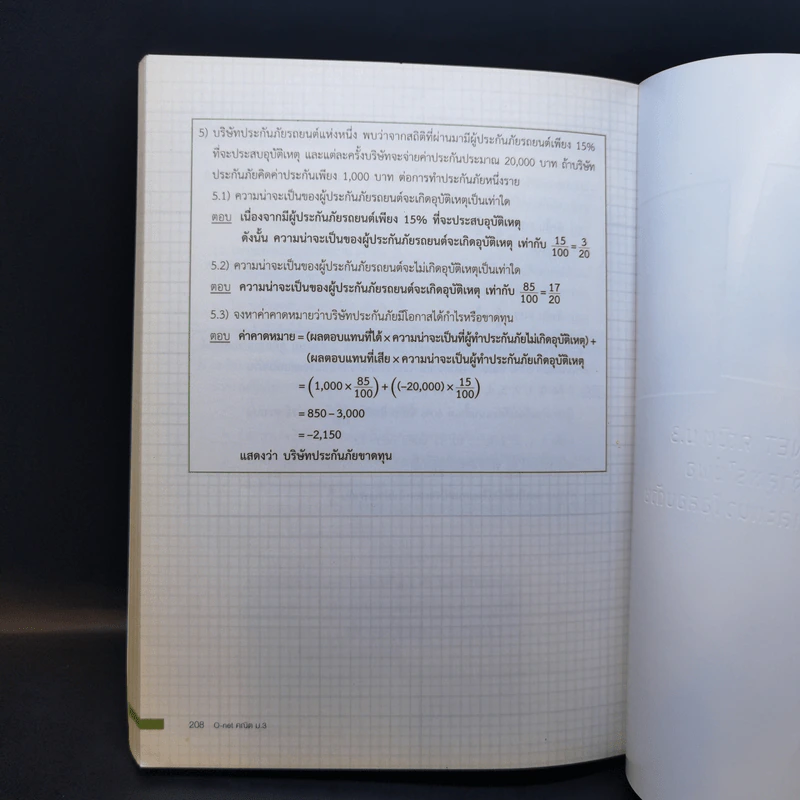 5) บริษัทประกันภัยรถยนต์แห่งหนึ่ง พบว่าจากสถิติที่ผ่านมามีผู้ประกันภัยรถยนต์เพียง 15%
ที่จะประสบอุบัติเหตุ และแต่ละครั้งบริษัทจะจ่ายค่าประกันประมาณ 20,000 บาท ถ้าบริษัท
ประกันภัยคิดค่าประกันเพียง 1,000 บาท ต่อการทำประกันภัยหนึ่งราย
5.1) ความน่าจะเป็นของผู้ประกันภัยรถยนต์จะเกิดอุบัติเหตุเป็นเท่าใด
ตอบ เนื่องจากมีผู้ประกันภัยรถยนต์เพียง 15% ที่จะประสบอุบัติเหตุ
ดังนั้น ความน่าจะเป็นของผู้ประกันภัยรถยนต์จะเกิดอุบัติเหตุ เท่ากับ 15/100 = 3/20
5.2) ความน่าจะเป็นของผู้ประกันภัยรถยนต์จะไม่เกิดอุบัติเหตุเป็นเท่าใด
ตอบ ความน่าจะเป็นของผู้ประกันภัยรถยนต์จะเกิดอุบัติเหตุ เท่ากับ 85/100 = 17/20
5.3) จงหาค่าคาดหมายว่าบริษัทประกันภัยมีโอกาสได้กำไรหรือขาดทุน
ตอบ ค่าคาดหมาย = (ผลตอบแทนที่ได้ × ความน่าจะเป็นที่ผู้ทำประกันภัยไม่เกิดอุบัติเหตุ) +
(ผลตอบแทนที่เสีย × ความน่าจะเป็นผู้ทำประกันภัยเกิดอุบัติเหตุ
= (1,000 × 85/100) + ((−20,000) × 15/100)
= 850 − 3,000
= −2,150
แสดงว่า บริษัทประกันภัยขาดทุน
208 O-net คณิต ม.3